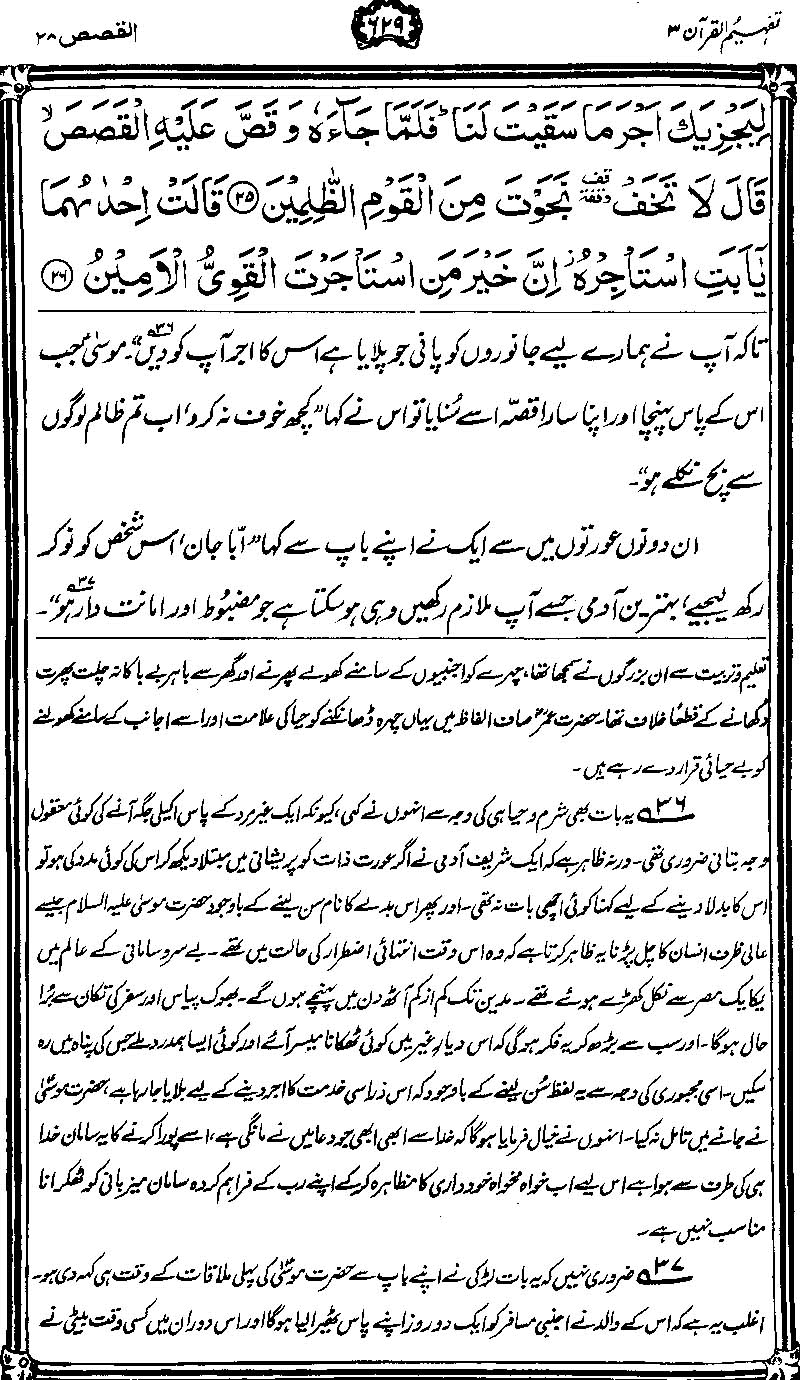 تفہیم القرآن ۳
۶۲۹
القصص ۲۸
لِيَجْزِيَكَ اَجْرَ مَا سَقَيْتَ لَنَا ؕ فَلَمَّا جَآءَهٗ وَ قَصَّ عَلَيْهِ الْقَصَصَ ۙ
قَالَ لَا تَخَفْ ۥقف وقفة نَجَوْتَ مِنَ الْقَوْمِ الظّٰلِمِيْنَ ۝۲۵ قَالَتْ اِحْدٰىهُمَا
يٰۤاَبَتِ اسْتَاْجِرْهُ ؗ اِنَّ خَيْرَ مَنِ اسْتَاْجَرْتَ الْقَوِيُّ الْاَمِيْنُ ۝۲۶
تاکہ آپ نے ہمارے لیے جانوروں کو پانی جو پلایا ہے اس کا اجر آپ کو دیں“۳۶۔ موسیٰؑ جب
اس کے پاس پہنچا اور اپنا سارا قصّہ اسے سُنایا تو اس نے کہا ”کچھ خوف نہ کرو، اب تم ظالم لوگوں
سے بچ نکلے ہو“۔
ان دونوں عورتوں میں سے ایک نے اپنے باپ سے کہا ”ابّا جان، اس شخص کو نوکر
رکھ لیجیے، بہترین آدمی جسے آپ ملازم رکھیں وہی ہو سکتا ہے جو مضبُوط اور امانت دار ہو“۳۷۔
تعلیم و تربیت سے ان بزرگوں نے سمجھا تھا، چہرے کو اجنبیوں کے سامنے کھولے پھرنے اور گھر سے باہر بے باکانہ چلت پھرت
دکھانے کے قطعًا خلاف تھا۔ حضرت عمرؓ صاف الفاظ میں یہاں چہرہ ڈھانکنے کو حیا کی علامت اور اسے اجانب کے سامنے کھولنے
کو بے حیائی قرار دے رہے ہیں۔
۳۶؎ یہ بات بھی شرم و حیا ہی کی وجہ سے انہوں نے کہی، کیونکہ ایک غیر مرد کے پاس اکیلی جگہ آنے کی کوئی معقول
وجہ بتانی ضروری تھی۔ ورنہ ظاہر ہے کہ ایک شریف آدمی نے اگر عورت ذات کو پریشانی میں مبتلا دیکھ کر اس کی کوئی مدد کی ہو تو
اس کا بدلا دینے کے لیے کہنا کوئی اچھی بات نہ تھی۔ اور پھر اس بدلے کا نام سن لینے کے باوجود حضرت موسیٰ علیہ السلام جیسے
عالی ظرف انسان کا چل پڑنا یہ ظاہر کرتا ہے کہ وہ اس وقت انتہائی اضطرار کی حالت میں تھے۔ بے سرو سامانی کے عالم میں
یکایک مصر سے نکل کھڑے ہوئے تھے۔ مدین تک کم از کم آٹھ دن میں پہنچے ہوں گے۔ بھوک پیاس اور سفر کی تکان سے بُرا
حال ہوگا۔ اور سب سے بڑھ کر یہ فکر ہوگی کہ اس دیارِ غیر میں کوئی ٹھکانا میسر آئے اور کوئی ایسا ہمدرد ملے جس کی پناہ میں رہ
سکیں۔ اسی مجبوری کی وجہ سے یہ لفظ سُن لینے کے باوجود کہ اس ذرا سی خدمت کا اجر دینے کے لیے بلایا جا رہا ہے، حضرت موسیٰؑ
نے جانے میں تامل نہ کیا۔ انہوں نے خیال فرمایا ہوگا کہ خدا سے ابھی ابھی جو دعا میں نے مانگی ہے، اسے پورا کرنے کا یہ سامان خدا
ہی کی طرف سے ہوا ہے اس لیے اب خواہ مخواہ خودداری کا مظاہرہ کر کے اپنے رب کے فراہم کردہ سامان میزبانی کو ٹھکرانا
مناسب نہیں ہے۔
۳۷؎ ضروری نہیں کہ یہ بات لڑکی نے اپنے باپ سے حضرت موسیٰؑ کی پہلی ملاقات کے وقت ہی کہہ دی ہو۔
اغلب یہ ہے کہ اس کے والد نے اجنبی مسافر کو ایک دو روز اپنے پاس ٹھیرا لیا ہوگا اور اس دوران میں کسی وقت بیٹی نے